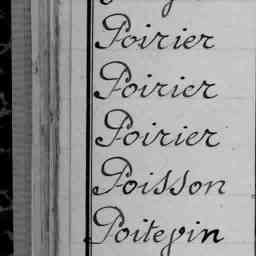 Poirier
Poirier
Poirier
Poisson
Poitevin